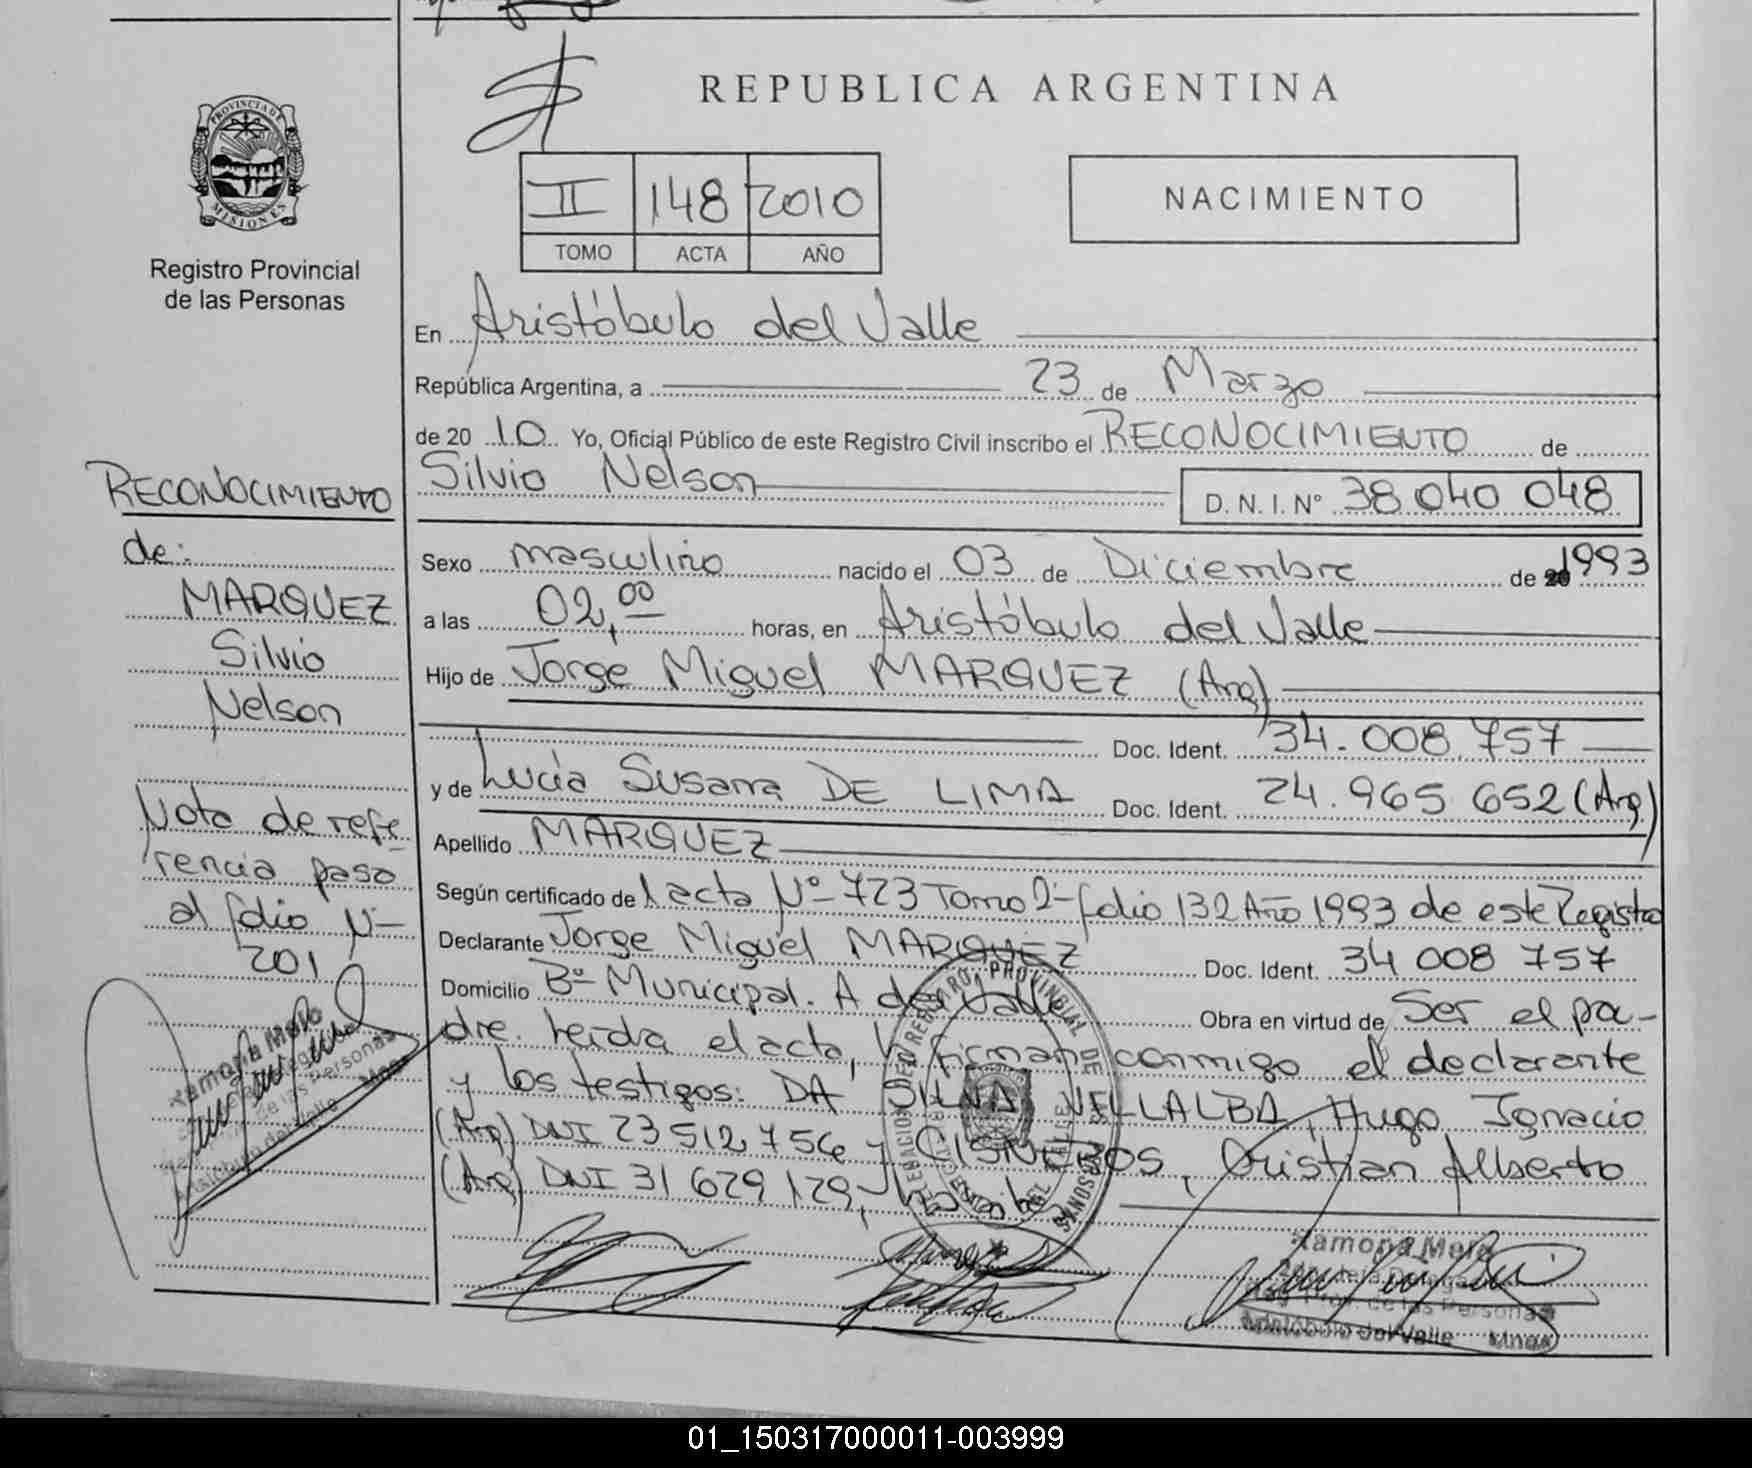 PROVINCIA DE
MISIONES
Registro Provincial
de las Personas
REPUBLICA ARGENTINA
II 148 2010
TOMO ACTA AÑO
NACIMIENTO
En Aristóbulo del Valle
República Argentina, a 23 de Marzo
de 20 10 Yo, Oficial Público de este Registro Civil inscribo el RECONOCIMIENTO de
Silvio Nelson D. N. I. N° 38.040 048
Sexo masculino nacido el 03 de Diciembre de 1993
a las 02,00 horas, en Aristóbulo del Valle
Hijo de Jorge Miguel MARQUEZ (Arg)
Doc. Ident. 34.008.757
y de Lucia Susana DE LIMA Doc. Ident. 24.965.652 (Arg)
Apellido MARQUEZ
Según certificado de acta Nº 723 Tomo 2º folio 132 Año 1993 de este Registro
Declarante Jorge Miguel MARQUEZ Doc. Ident. 34 008 757
Domicilio Bº Municipal. A del Valle Obra en virtud de Ser el pa-
dre. Leida el acta, firman conmigo el declarante
y los testigos: DA SILVA VELLALBA, Hugo Ignacio
(Arg) DNI 23 512 756 y CISNEROS, Cristian Alberto
(Arg) DNI 31 629 129
RECONOCIMIENTO
de:
MARQUEZ
Silvio
Nelson
Nota de refe
rencia pasa
al folio Nº
201
Ramona Melo
de las Personas
Aristóbulo del Valle
Ramona Melo
de las Personas
Aristóbulo del Valle Mnes
01_150317000011-003999